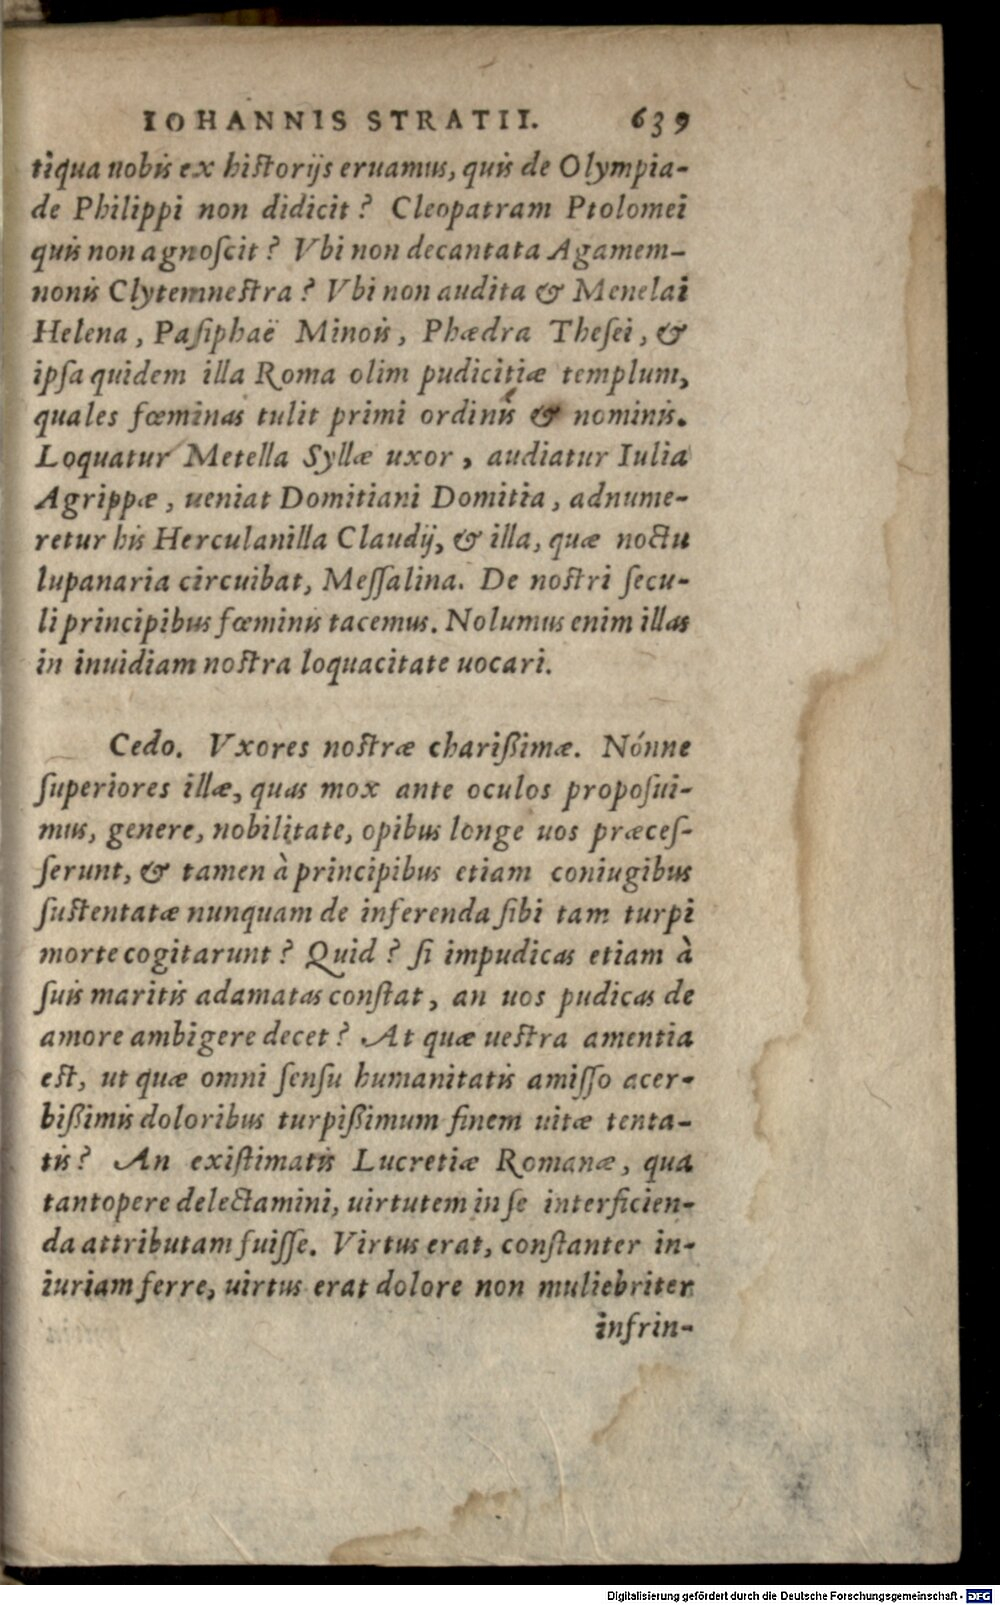 IOHANNIS STRATII. 639
tiqua nobis ex historijs eruamus, quis de Olympia-
de Philippi non didicit? Cleopatram Ptolomei
quis non agnoſcit? Vbi non decantata Agamem-
nonis Clytemnestra? Vbi non audita & Menelai
Helena, Paſiphaë Minois, Phædra Theſei, &
ipſa quidem illa Roma olim pudicitiæ templum,
quales fœminas tulit primi ordinis & nominis.
Loquatur Metella Syllæ uxor, audiatur Iulia
Agrippæ, ueniat Domitiani Domitia, adnume-
retur his Herculanilla Claudij, & illa, quæ noctu
lupanaria circuibat, Meſſalina. De nostri ſecu-
li principibus fœminis tacemus. Nolumus enim illas
in inuidiam nostra loquacitate uocari.
Cedo. Vxores nostræ charißimæ. Nónne
ſuperiores illæ, quas mox ante oculos propoſui-
mus, genere, nobilitate, opibus longe uos præceſ-
ſerunt, & tamen à principibus etiam coniugibus
ſustentatæ nunquam de inferenda ſibi tam turpi
morte cogitarunt? Quid? ſi impudicas etiam à
ſuis maritis adamatas conſtat, an uos pudicas de
amore ambigere decet? At quæ uestra amentia
est, ut quæ omni ſenſu humanitatis amiſſo acer-
bißimis doloribus turpißimum finem uitæ tenta-
tis? An exiſtimatis Lucretiæ Romanæ, qua
tantopere delectamini, uirtutem in ſe interficien-
da attributam fuiſſe. Virtus erat, conſtanter in-
iuriam ferre, uirtus erat dolore non muliebriter
infrin-
Digitalisierung gefördert durch die Deutsche Forschungsgemeinschaft - DFG